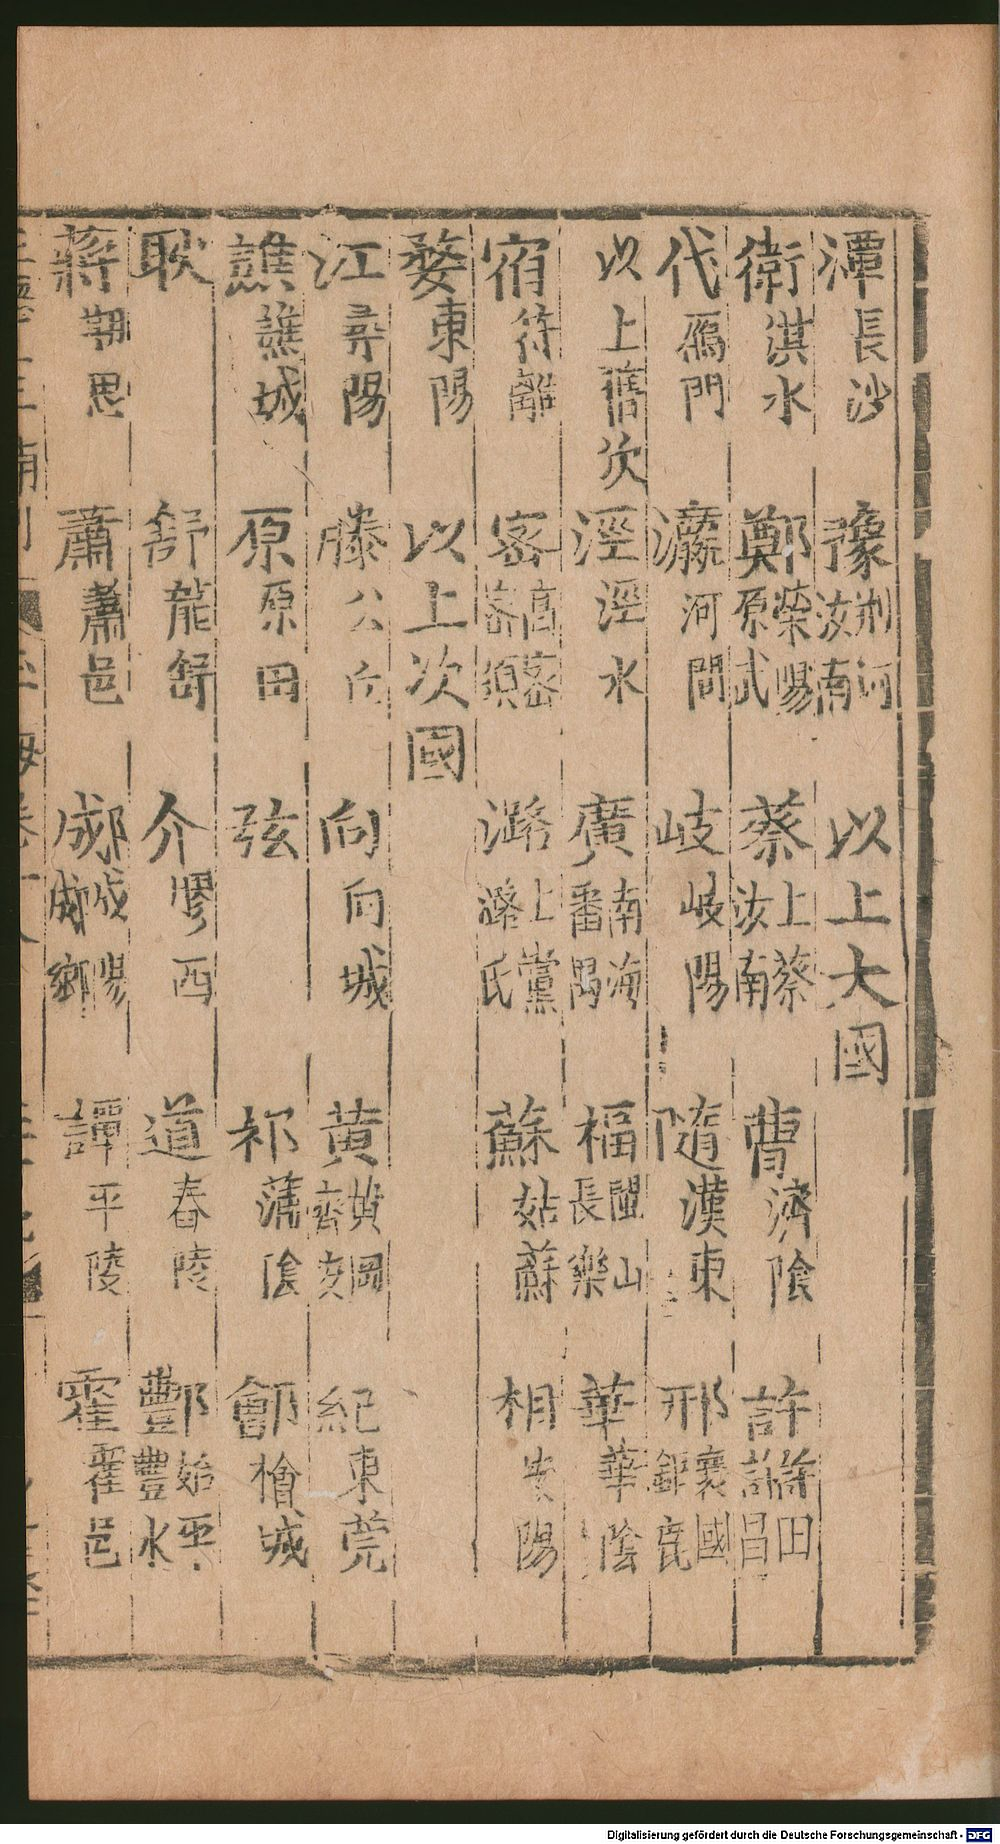 潭長沙 豫荆河汝南 以上大國
衛淇水 鄭滎陽原武 蔡上蔡汝南 曹濟陰 許許田許昌
代鴈門 瀛河間 岐岐陽 隨漢東 邢襄國鉅鹿
以上舊次 涇涇水 廣南海番禺 福閩山長樂 華華陰
宿符離 密高密密須 潞上黨潞氏 蘇姑蘇 相安陽
婺東陽 以上次國
江尋陽 滕公丘 向向城 黄黄岡齊安 紀東莞
譙譙城 原原田 弦 祁蒲陰 鄶檜城
耿 舒龍舒 介膠西 道舂陵 酆始平豐水
蔣期思 蕭蕭邑 郕成陽郕鄉 譚平陵 霍霍邑
Digitalisierung gefördert durch die Deutsche Forschungsgemeinschaft - DFG